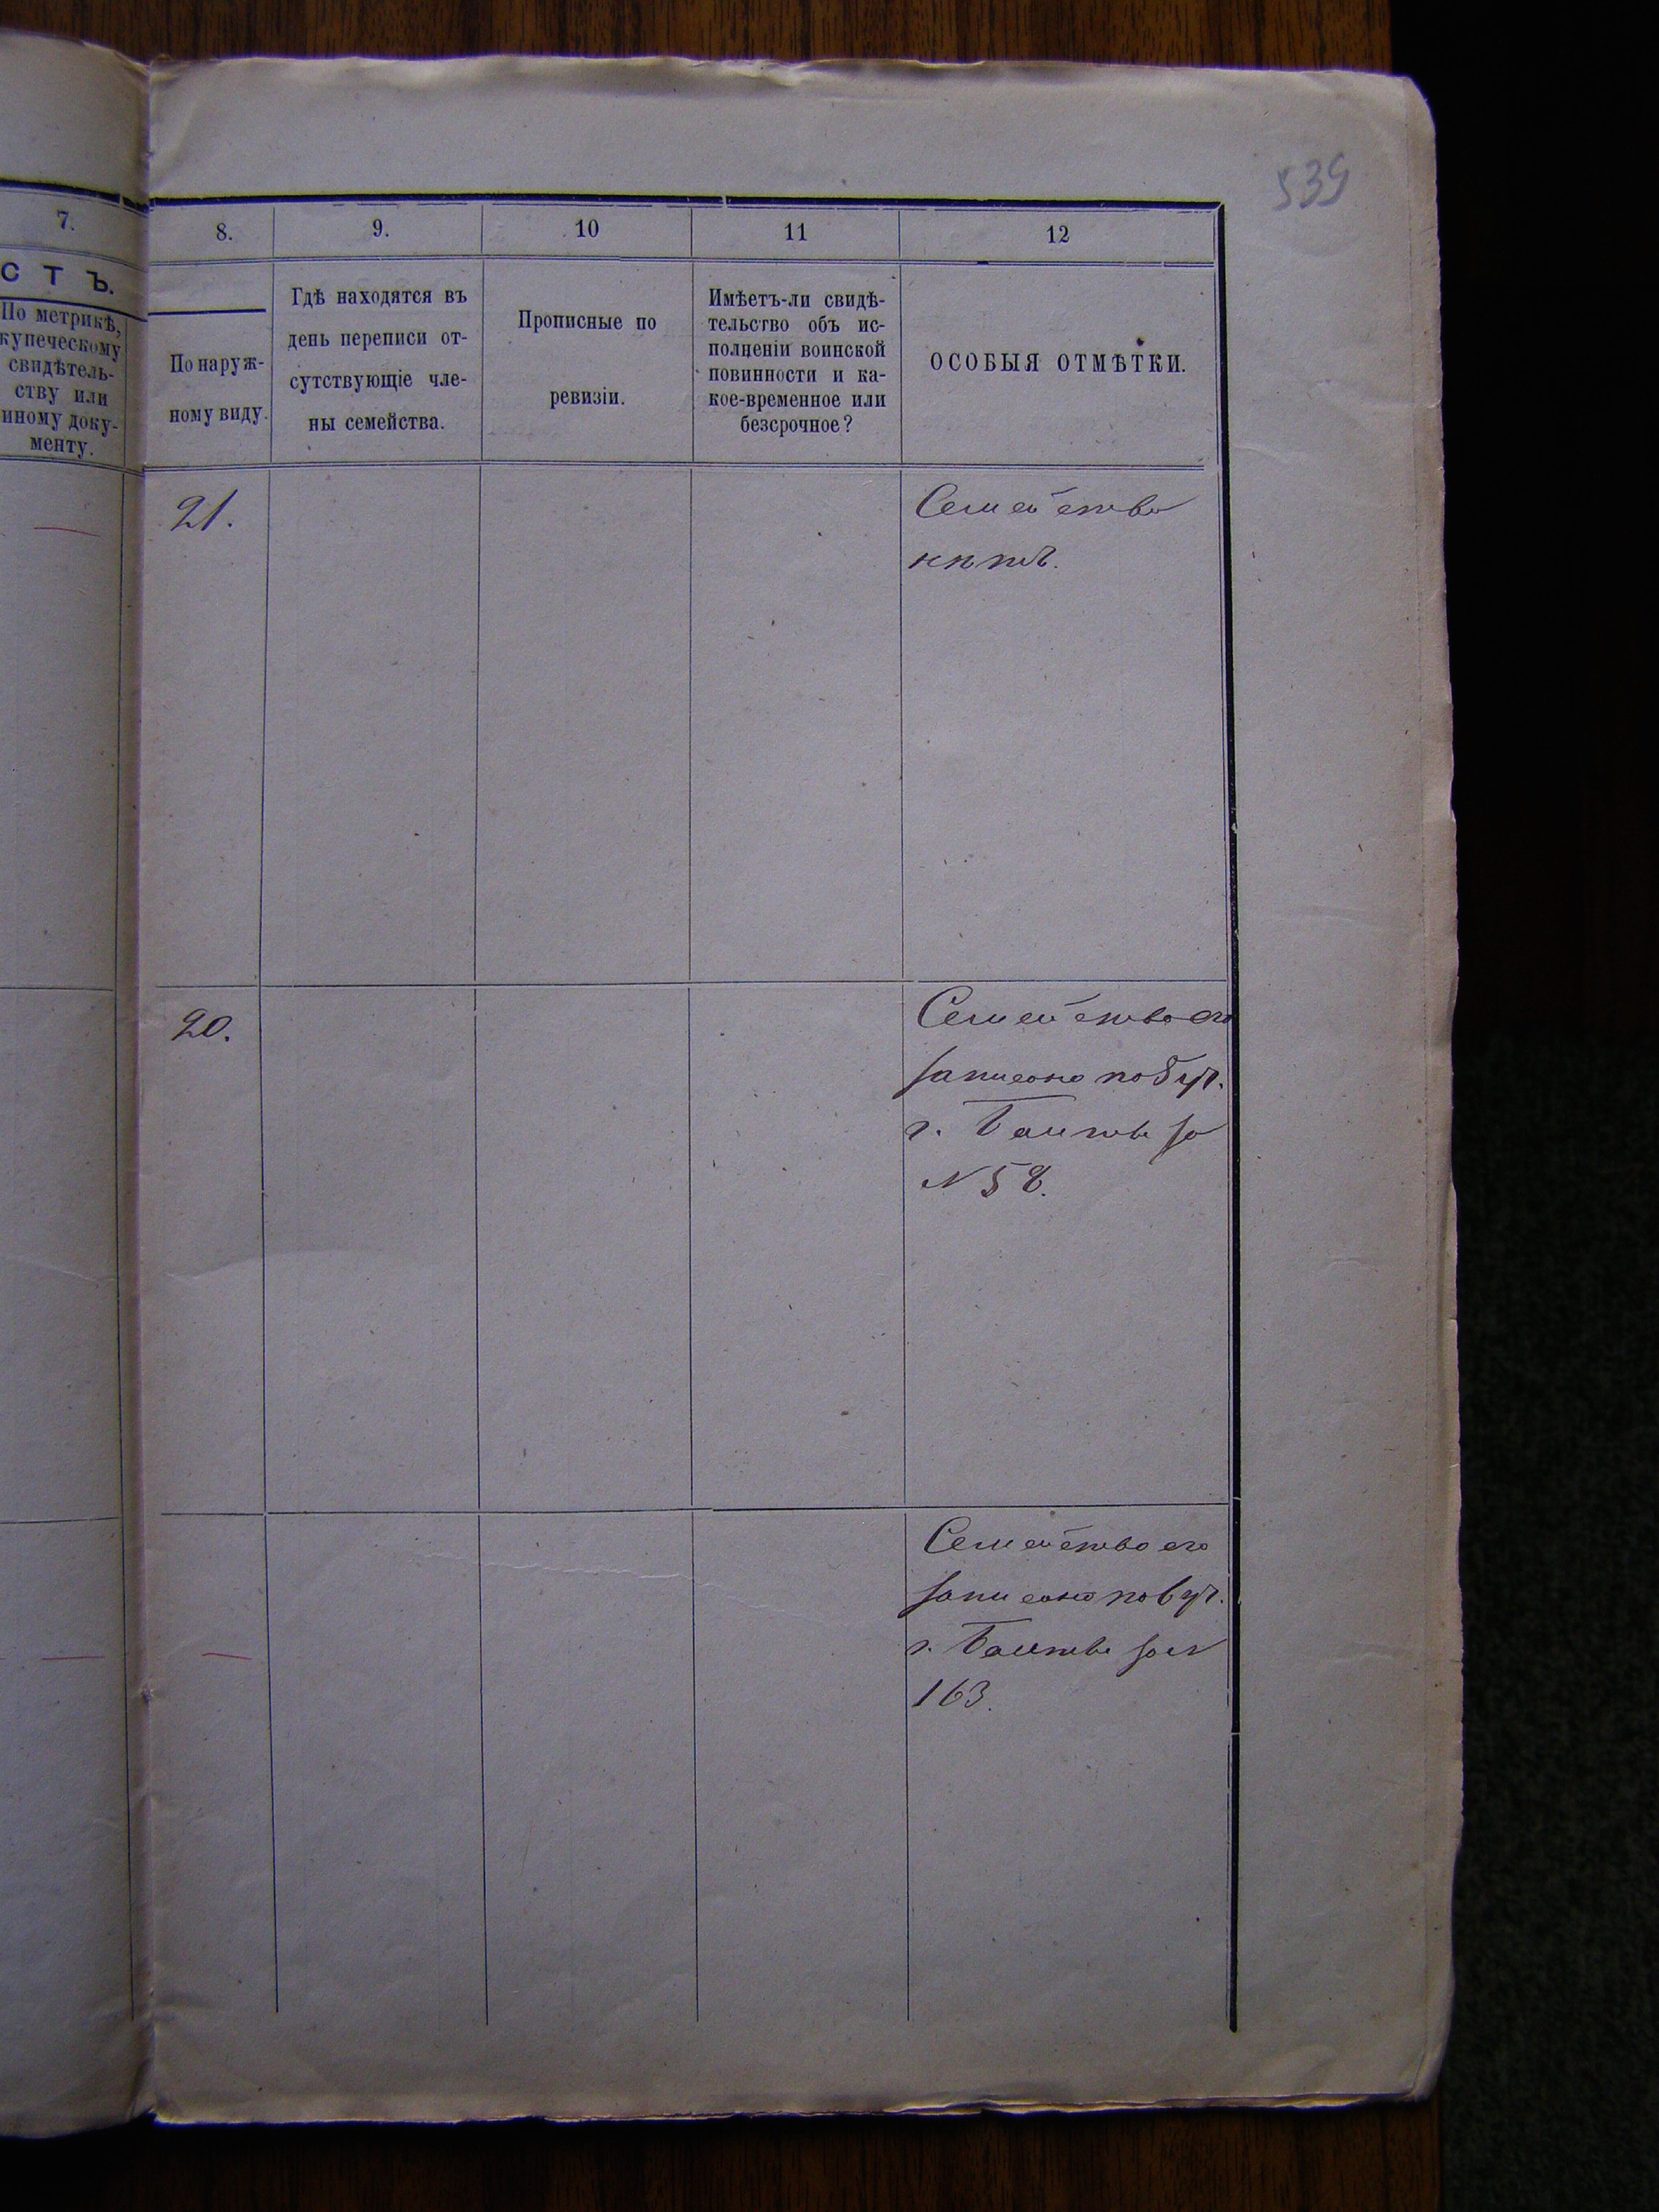 539
7.
8.
9.
10
11
12
СТЪ.
По метрикѣ,
купеческому
свидѣтель-
ству или
иному доку-
менту.
По наруж-
ному виду.
Гдѣ находятся въ
день переписи от-
сутствующіе чле-
ны семейства.
Прописные по
ревизіи.
Имѣетъ-ли свидѣ-
тельство объ ис-
полненіи воинской
повинности и ка-
кое-временное или
безсрочное?
ОСОБЫЯ ОТМѢТКИ.
21.
Семейства
нѣтъ.
20.
Семейство его
записано по
г. за
N 58.
Семейство его
записано по
г.
163.